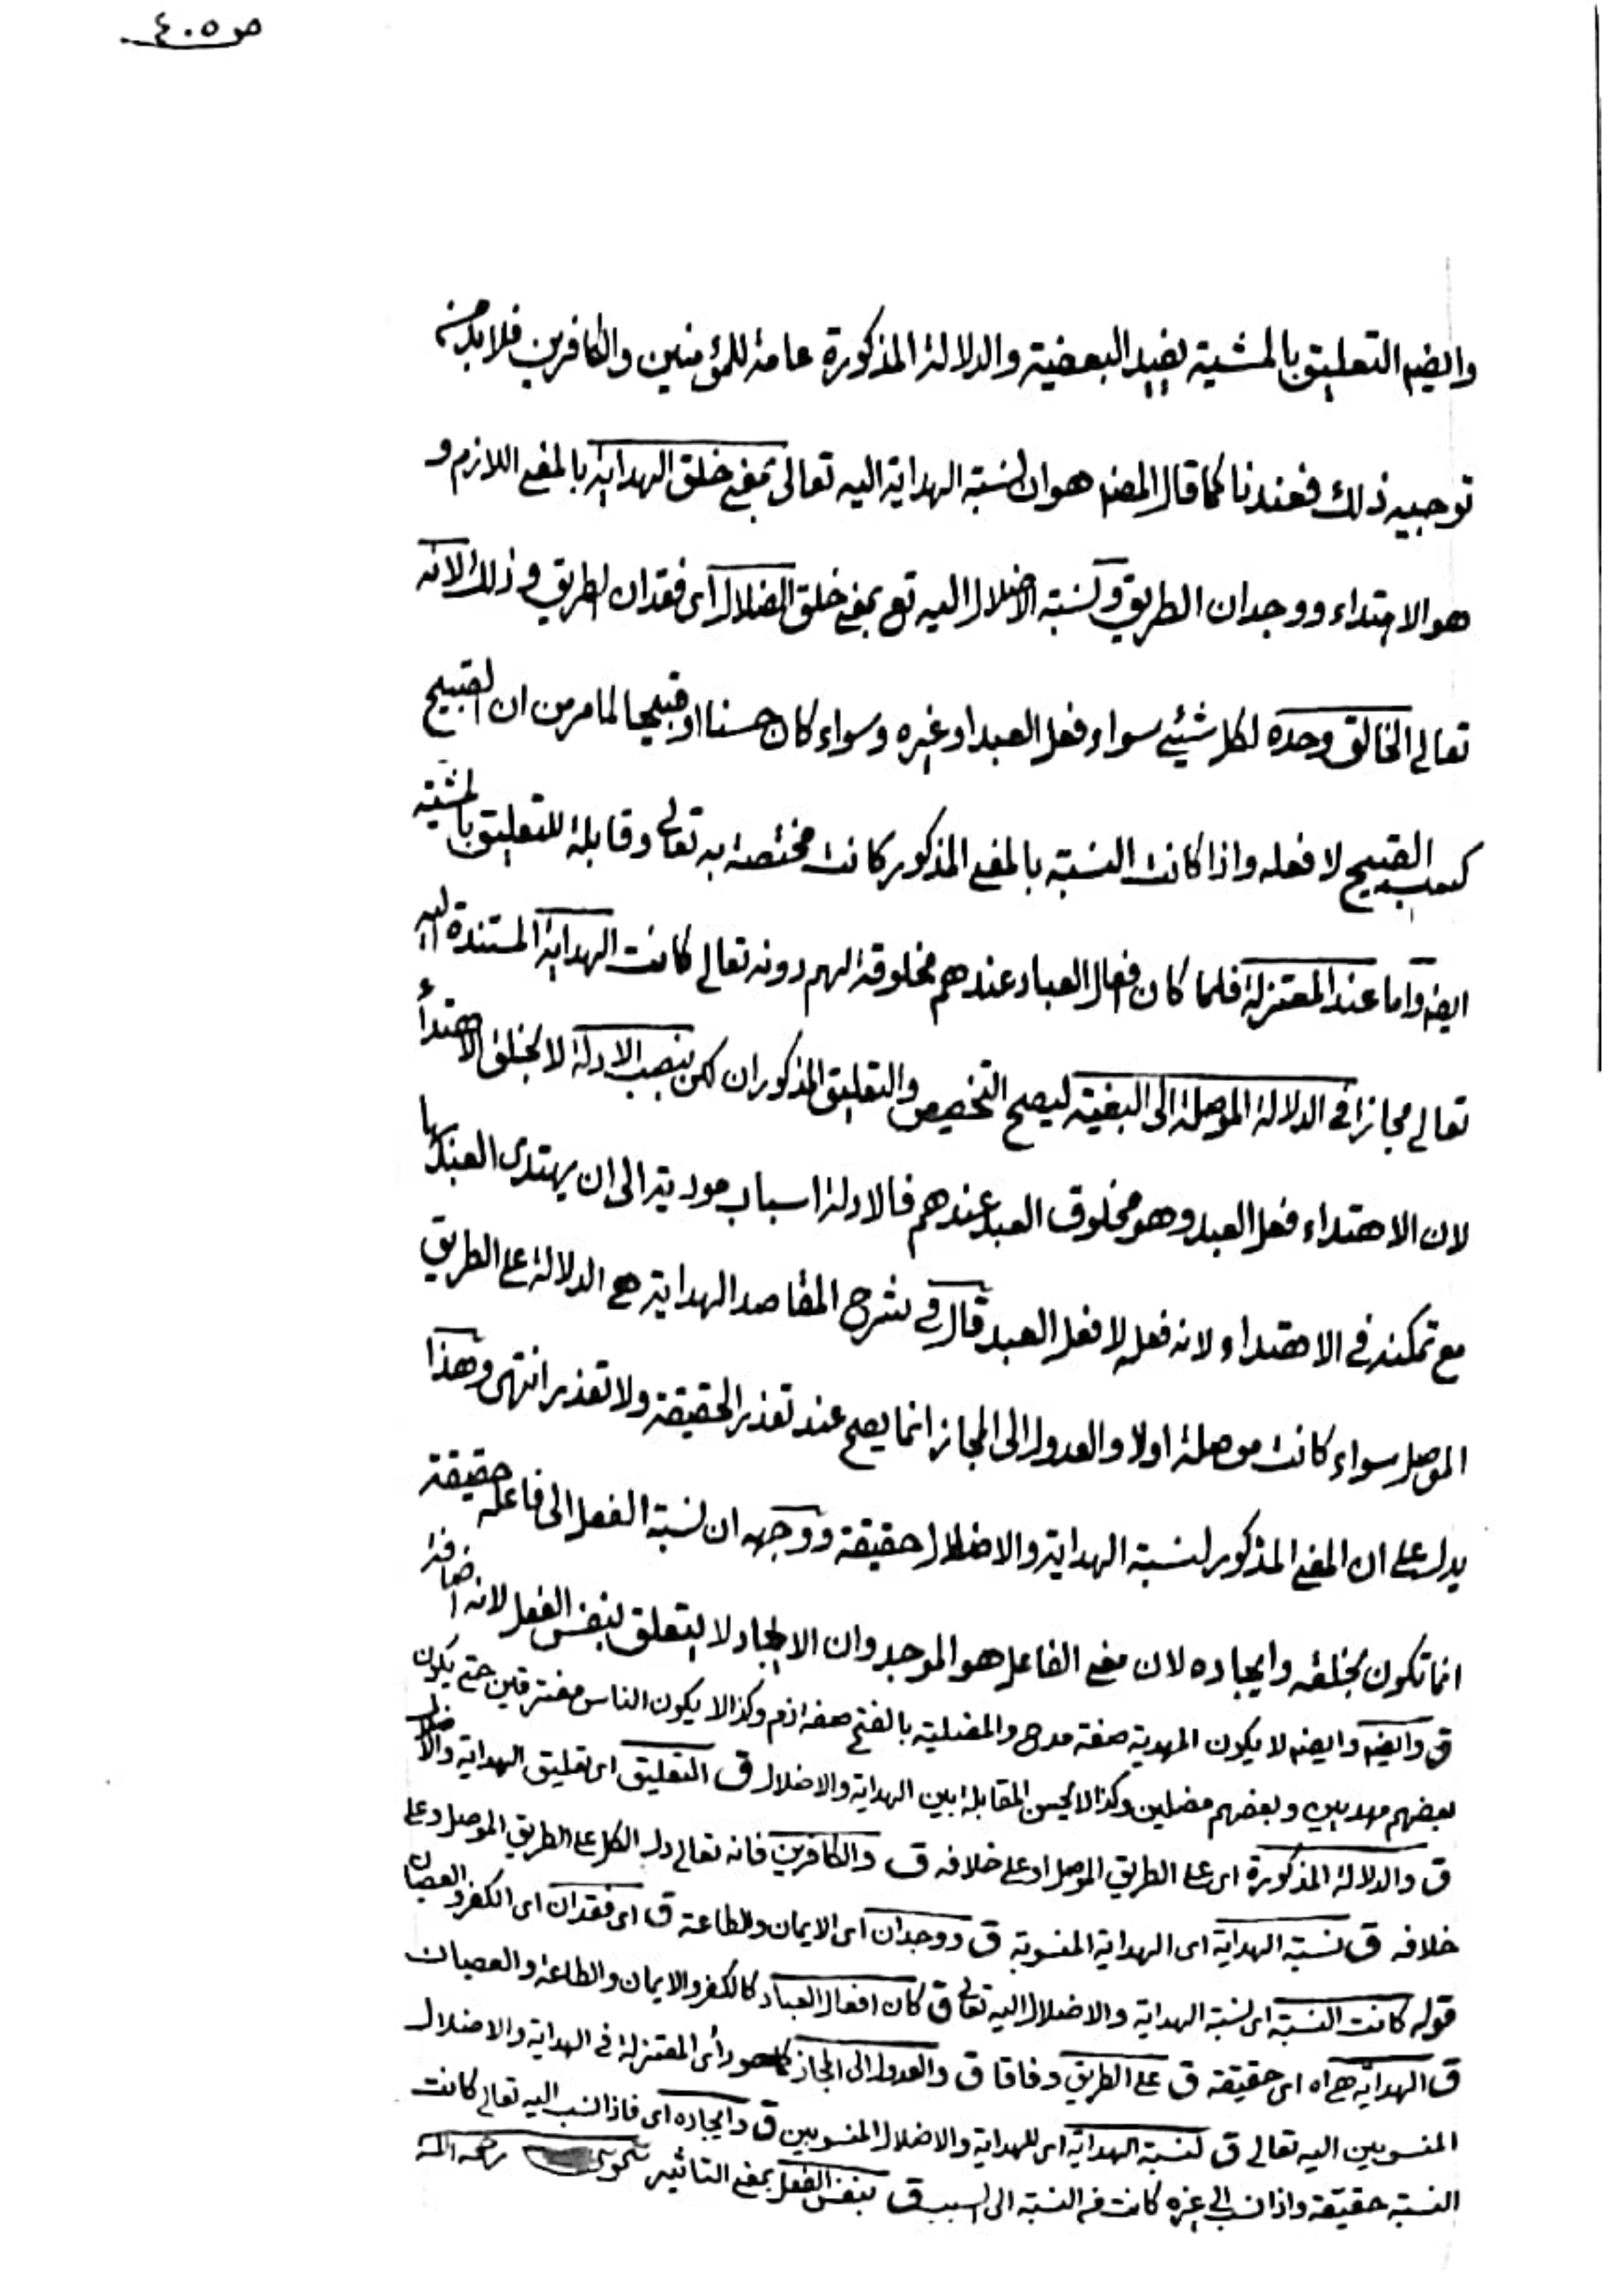 ص ٤٠٥
وايضم التعليق بالمشية يفيد البعضية والدلالة المذكورة عامة للمؤمنين والكافرين فلا بد من
توجيه ذلك فعندنا كما قال المصنم هو ان نسبة الهداية اليه تعالى بمعنى خلق الهداية بالمعنى اللازم و
هو الاهتداء ووجدان الطريق ونسبة الاضلال اليه تع بمعنى خلق الضلال اى فقدان الطريق وذلك لانه
تعالى الخالق وحده لكل شيئ سواء فعل العبد او غيره وسواء كان حسنا او قبيحا لما مر من ان القبيح
كسب القبيح لا فعله واذا كانت النسبة بالمعنى المذكور كانت مختصة به تعالى وقابلة للتعليق بالمشية
ايضم واما عند المعتزلة فلما كان افعال العباد عندهم مخلوقة لهم دونه تعالى كانت الهداية المستندة اليه
تعالى مجازا فى الدلالة الموصلة الى البغية ليصح التخصيص والتعليق المذكوران لكن بنصب الادلة لا بخلق الاهتداء
لان الاهتداء فعل العبد وهو مخلوق العبد عندهم فالادلة اسباب مودية الى ان يهتدى العبد بها
مع تمكنه فى الاهتداء لانه فعله لا فعل العبد قال فى شرح المقاصد الهداية هى الدلالة على الطريق
الموصل سواء كانت موصلة اولا والعدول الى المجاز انما يصح عند تعذر الحقيقة ولا تعذر انتهى وهذا
يدل على ان المعنى المذكور لنسبة الهداية والاضلال حقيقة ووجهه ان نسبة الفعل الى فاعله حقيقة
انما تكون بخلقه وايجاده لان معنى الفاعل هو الموجد وان الايجاد لا يتعلق بنفس الفعل لانه اضافة
ق وايضم وايضم لا يكون المهدية صفة مدح والمضلية بالفتح صفة ذم وكذا لا يكون الناس مفترقين حتى يكون
بعضهم مهديين وبعضهم مضلين وكذا لا يحسن المقابلة بين الهداية والاضلال ق التعليق اى تعليق الهداية والاضلال
ق والدلالة المذكورة اى على الطريق الموصل او على خلافه ق والكافرين فانه تعالى دل الكل على الطريق الموصل وعلى
خلافه ق نسبة الهداية اى الهداية المنسوبة ق ووجدان اى الايمان والطاعة ق اى فقدان اى الكفر والعصيان
قوله كانت النسبة اى نسبة الهداية والاضلال اليه تعالى ق كان افعال العباد كالكفر والايمان والطاعة والعصيان
ق الهداية هى اه اى حقيقة ق على الطريق وفاقا ق والعدول الى المجاز كما هو رأى المعتزلة فى الهداية والاضلال
المنسوبين اليه تعالى ق لنسبة الهداية اى للهداية والاضلال المنسوبين ق وايجاده اى فاذا نسب اليه تعالى كانت
النسبة حقيقة واذا نسب الى غيره كانت فى النسبة الى السبب ق بنفس الفعل بمعنى التاثير رحمه الله